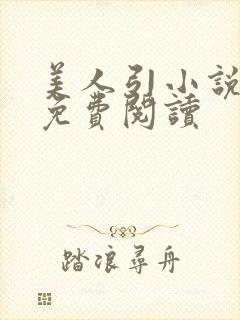 美人引小說
免費閱讀
踏浪尋舟